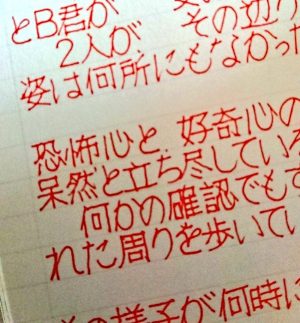 とB君が
2人が、その辺り
姿は何所にもなかった
恐怖心と、好奇心の
呆然と立ち尽している
何かの確認でもす
れた周りを歩いてい
の様子が何時に